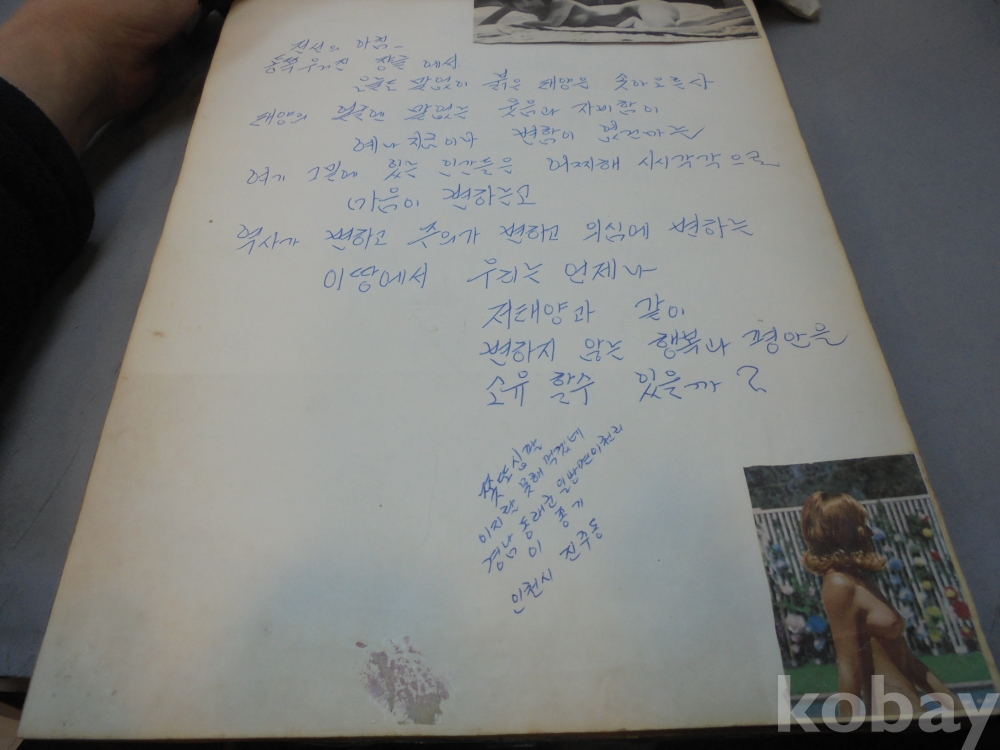 전선의 아침
동쪽 우거진 장글에서
오늘도 말없이 붉은 태양은 솟아오르사
태양의 얼굴엔 말없는 웃음과 자비함이
예나 지금이나 변함이 없건마는
여기 그밑에 있는 인간들은 어찌해 시시각각으로
마음이 변하는고
역사가 변하고 주의가 변하고 의심에 변하는
이땅에서 우리는 언제나
저태양과 같이
변하지 않는 행복과 평안을
소유 할수 있을까?
이지랄 못해 먹겠네
경남 동래군 일반면이천리
이 종기
인천시 진주동
kobay